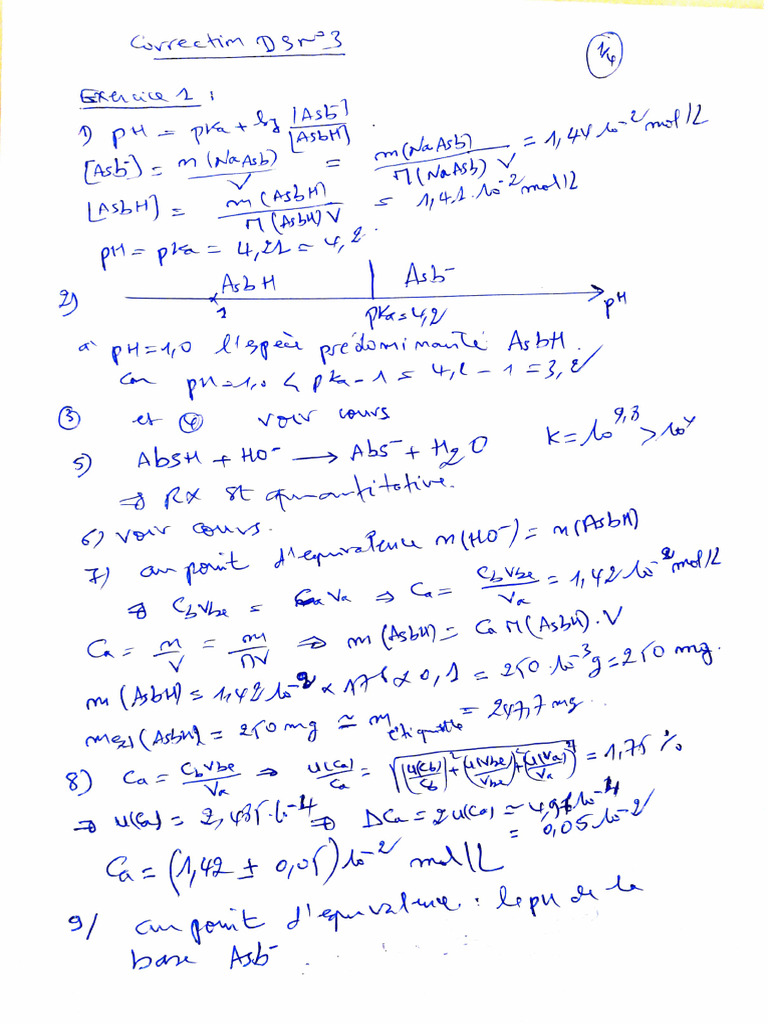 Correction DS n°3
1/4
Exercice 1 :
1) pH = pKa + log [Asb⁻]/[AsbH] .
[Asb⁻] = n(NaAsb)/V = m(NaAsb)/M(NaAsb) V = 1,41 10⁻² mol/L
[AsbH] = m(AsbH)/M(AsbH) V = 1,41 . 10⁻² mol/L
pH = pKa = 4,21 = 4,2 .
2) AsbH Asb⁻
1 pKa = 4,2 pH
à pH=1,0 l'espèce prédominante AsbH .
car pH=1,0 < pKa - 1 = 4,2 - 1 = 3,2
③ et ④ voir cours
5) AbsH + HO⁻ → Abs⁻ + H₂O K = 10^9,3 > 10⁴
⇒ RX st quantitative.
6) voir cours.
7) au point d'équivalence n(HO⁻) = n(AsbH)
⇒ CbVbe = CaVa ⇒ Ca = CbVbe/Va = 1,42 10⁻² mol/L
Ca = n/V = m/MV ⇒ m(AsbH) = Ca M(AsbH) . V
m(AsbH) = 1,42 10⁻² × 176 × 0,1 = 250 . 10⁻³ g = 250 mg.
mexp(AsbH) = 250 mg ≃ métiquette = 247,7 mg .
8) Ca = CbVbe/Va ⇒ u(Ca)/Ca = √((u(Cb)/Cb)² + (u(Vbe)/Vbe)² + (u(Va)/Va)²) = 1,75 %
⇒ u(Ca) = 2,485 . 10⁻⁴ ⇒ ΔCa = 2u(Ca) ≃ 4,97 10⁻⁴
= 0,05 10⁻²
Ca = (1,42 ± 0,05) 10⁻² mol/L
9/ au point d'équivalence : le pH de la
base Asb⁻ .